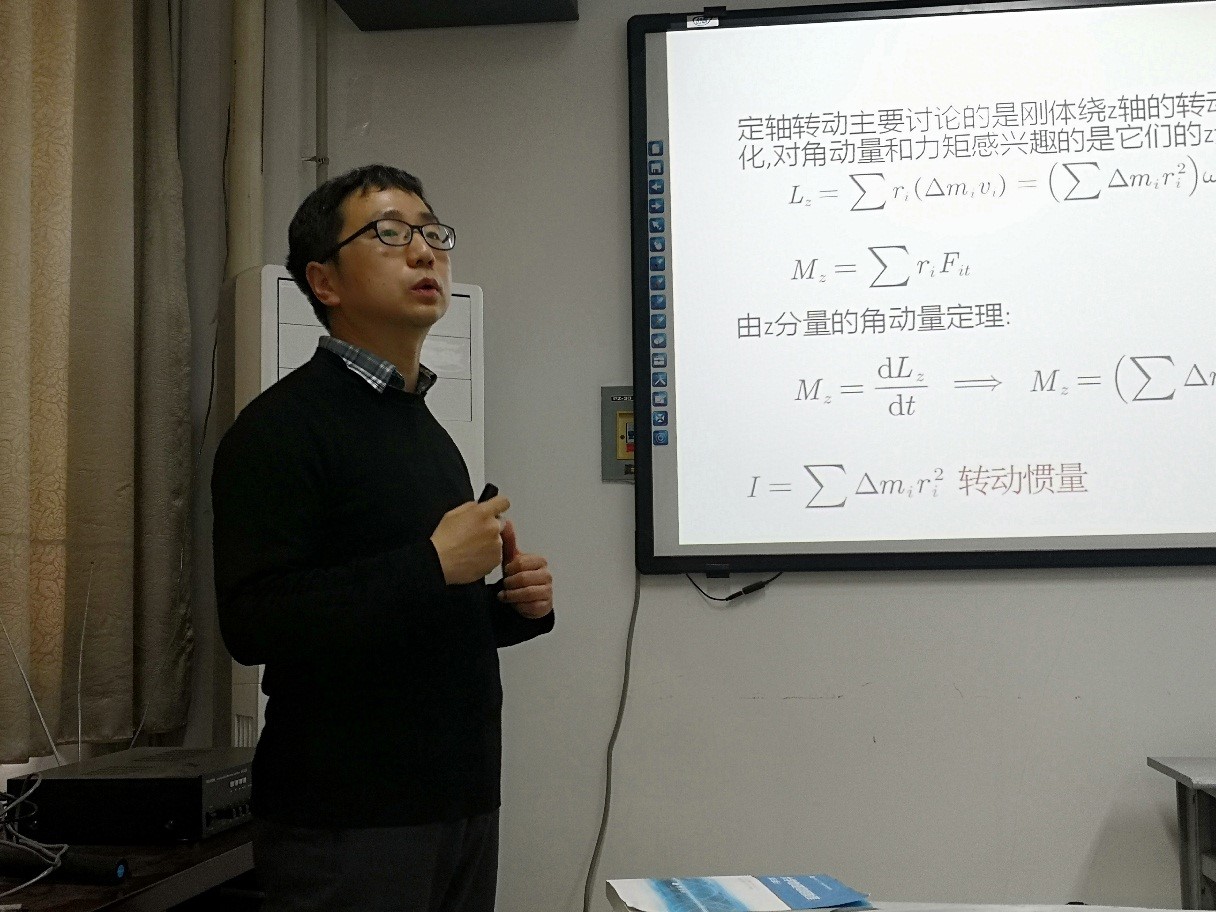 定轴转动主要讨论的是刚体绕z轴的转动
化,对角动量和力矩感兴趣的是它们的z
L_z = ∑ r_i(Δm_i v_i) = (∑ Δm_i r_i^2) ω
M_z = ∑ r_i F_{it}
由z分量的角动量定理:
M_z = dL_z/dt ⟹ M_z = (∑ Δm
I = ∑ Δm_i r_i^2 转动惯量